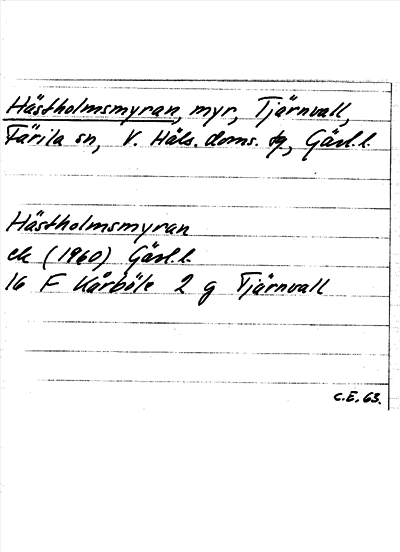 Hästholmsmyran, myr, Tjärnvall,
Färila sn, V. Häls. doms. tg, Gävl.l.
Hästholmsmyran
ek (1960) Gävl.l.
16 F Kårböle 2 g Tjärnvall
C.E. 63.